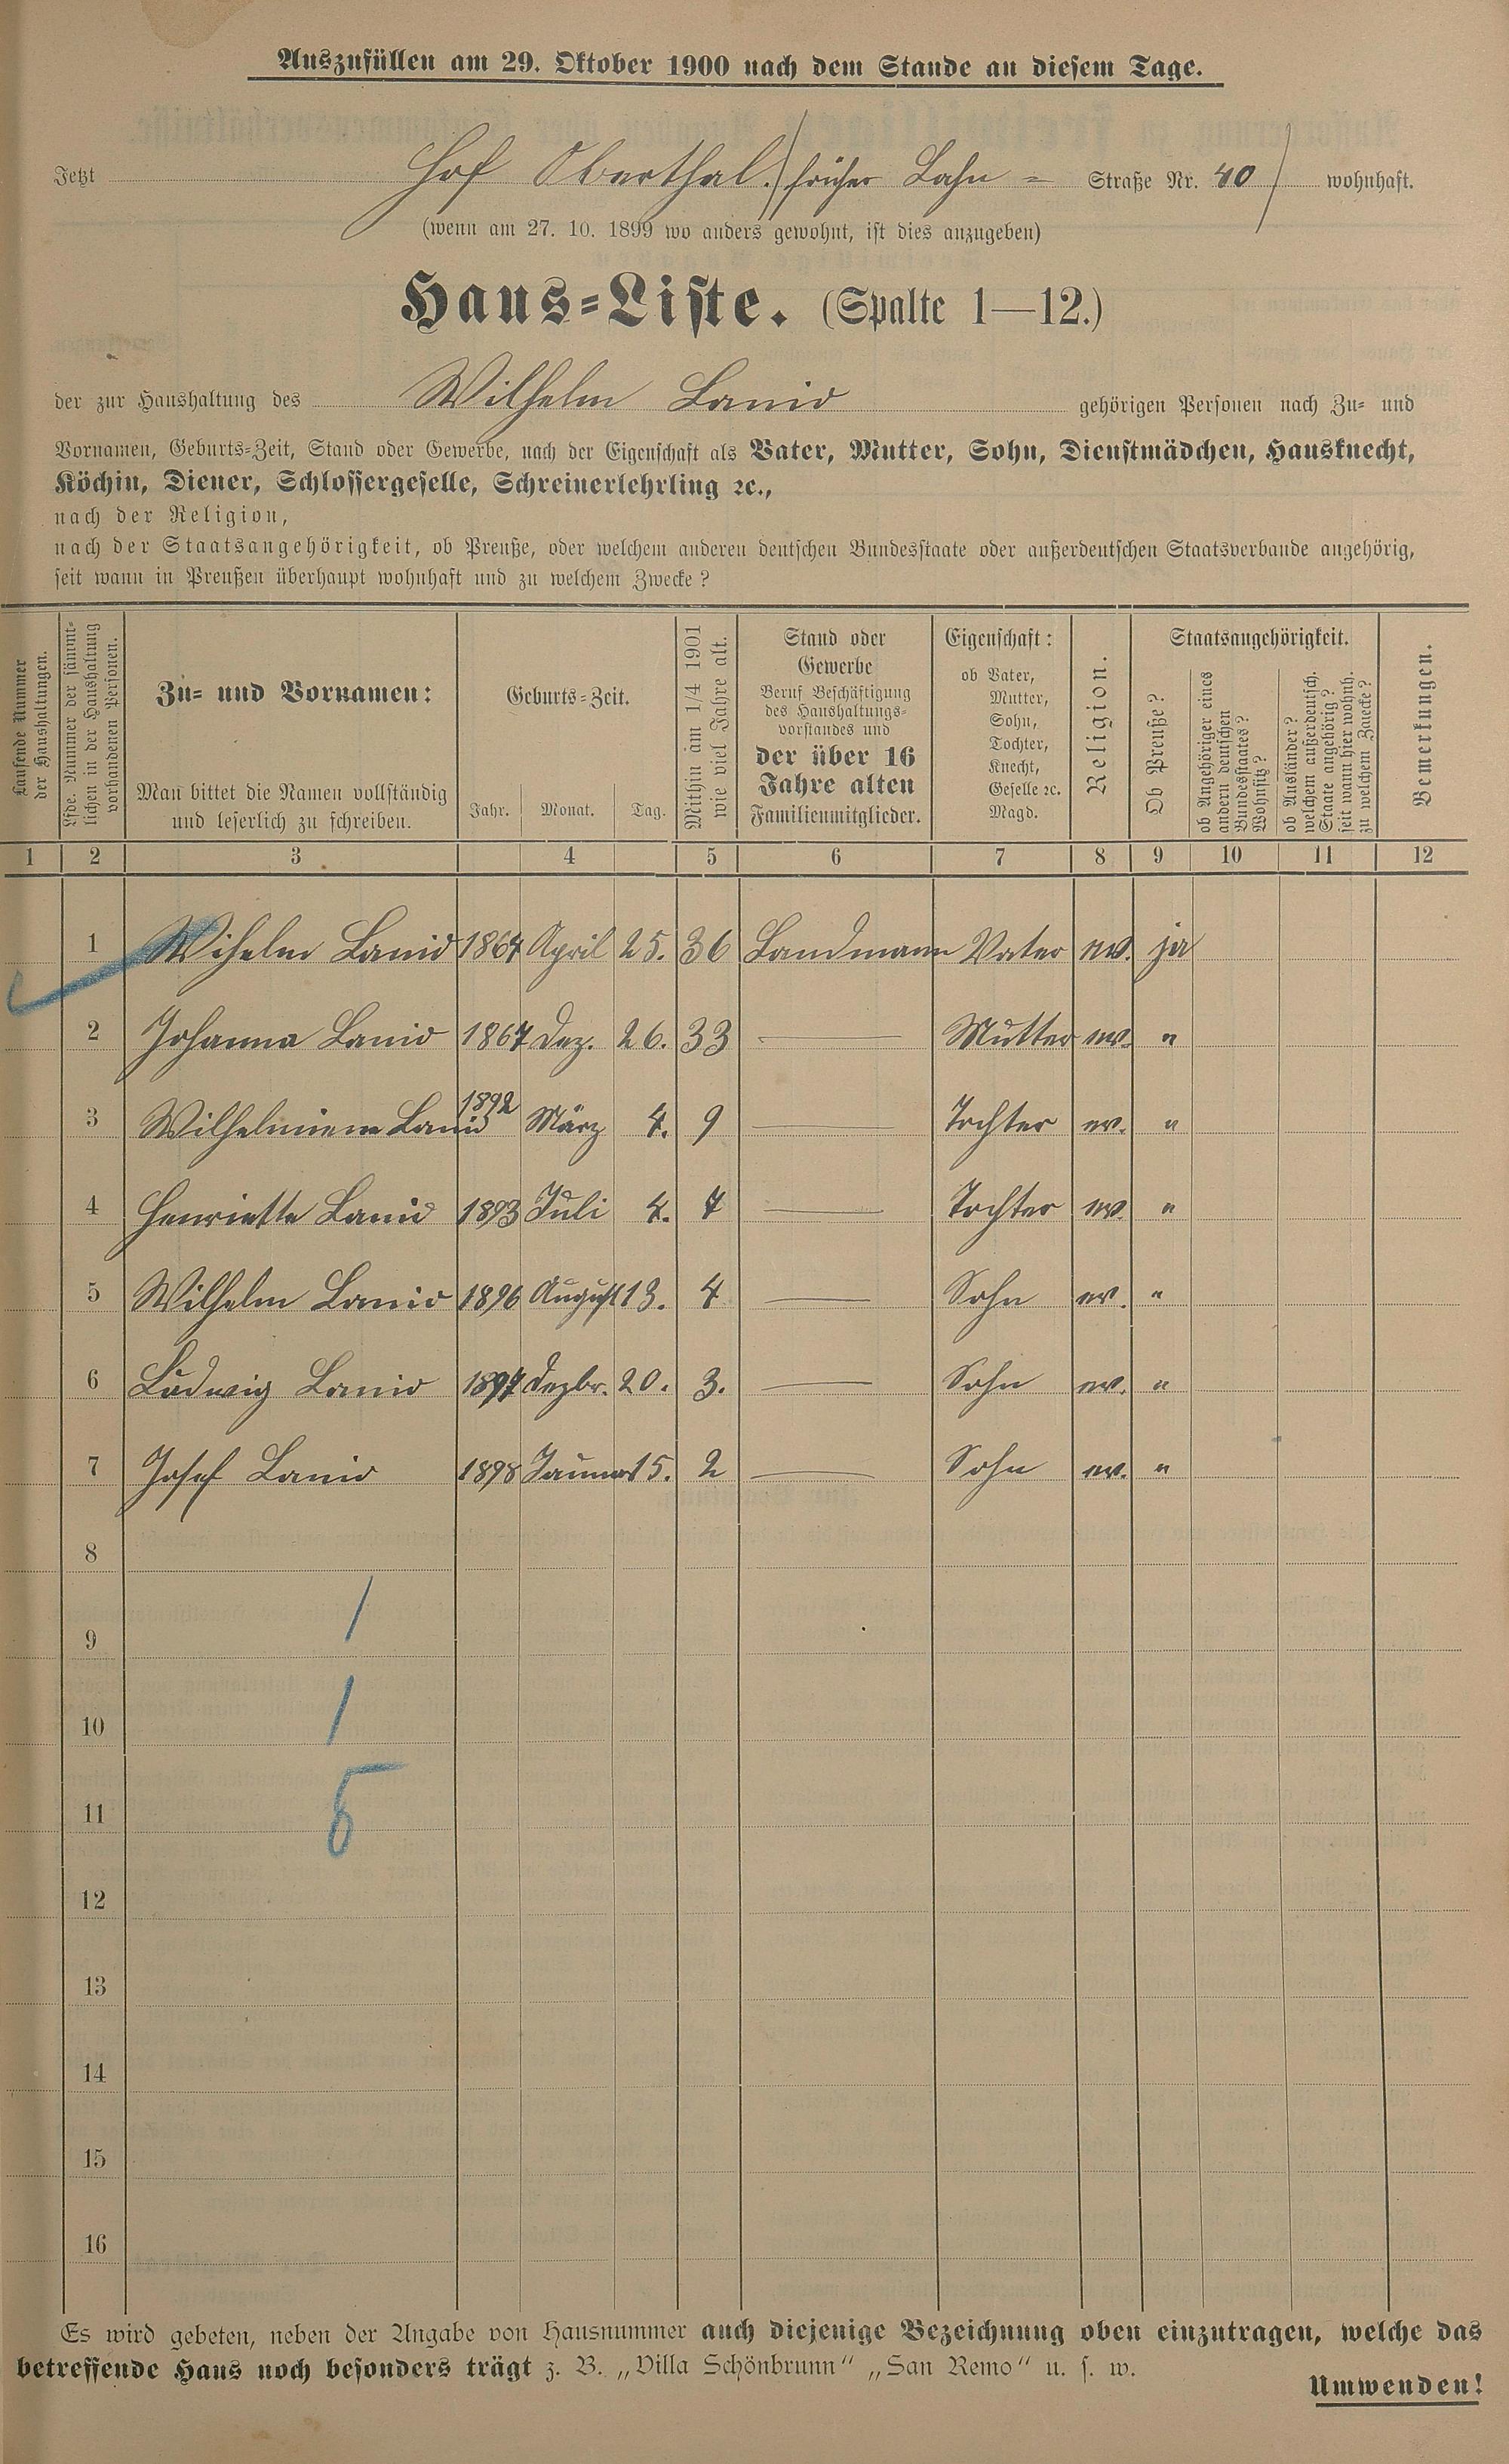 Auszufüllen am 29. Oktober 1900 nach dem Stande an diesem Tage.
Jetzt Hof Oberthal. (früher Lahn = Straße Nr. 40) wohnhaft.
(wenn am 27. 10. 1899 wo anders gewohnt, ist dies anzugeben)
Haus=Liste. (Spalte 1—12.)
der zur Haushaltung des Wilhelm Lanio gehörigen Personen nach Zu= und
Vornamen, Geburts=Zeit, Stand oder Gewerbe, nach der Eigenschaft als Vater, Mutter, Sohn, Dienstmädchen, Hausknecht,
Köchin, Diener, Schlossergeselle, Schreinerlehrling ꝛc.,
nach der Religion,
nach der Staatsangehörigkeit, ob Preuße, oder welchem anderen deutschen Bundesstaate oder außerdeutschen Staatsverbande angehörig,
seit wann in Preußen überhaupt wohnhaft und zu welchem Zwecke?
Laufende Nummer
der Haushaltungen.
Lfde. Nummer der sämmt-
lichen in der Haushaltung
vorhandenen Personen.
Zu= und Vornamen:
Man bittet die Namen vollständig
und leserlich zu schreiben.
Geburts=Zeit.
Jahr. Monat. Tag.
Mithin am 1/4 1901
wie viel Jahre alt.
Stand oder
Gewerbe
Beruf Beschäftigung
des Haushaltungs=
vorstandes und
der über 16
Jahre alten
Familienmitglieder.
Eigenschaft:
ob Vater,
Mutter,
Sohn,
Tochter,
Knecht,
Geselle ꝛc.
Magd.
Religion.
Staatsangehörigkeit.
Ob Preuße?
ob Angehöriger eines
andern deutschen
Bundesstaates?
Wohnsitz?
ob Ausländer?
welchem außerdeutsch.
Staate angehörig?
seit wann hier wohnh.
zu welchem Zwecke?
Bemerkungen.
1 2 3 4 5 6 7 8 9 10 11 12
1 Wihelm Lanio 1864 April 25. 36 Landmann Vater ev. ja
2 Johanna Lanio 1867 Dez. 26. 33 — Mutter ev. "
3 Wilhelmiene Lanio 1892 März 4. 9 — Tochter ev. "
4 Henriette Lanio 1893 Juli 4. 7 — Tochter ev. "
5 Wilhelm Lanio 1896 August 13. 4 — Sohn ev. "
6 Ludwig Lanio 1897 Dezbr. 20. 3. — Sohn ev. "
7 Josef Lanio 1898 15. 2 — Sohn ev. "
8
9 1
10 1
11 5
12
13
14
15
16
Es wird gebeten, neben der Angabe von Hausnummer auch diejenige Bezeichnung oben einzutragen, welche das
betreffende Haus noch besonders trägt z. B. „Villa Schönbrunn“ „San Remo“ u. s. w.
Umwenden!